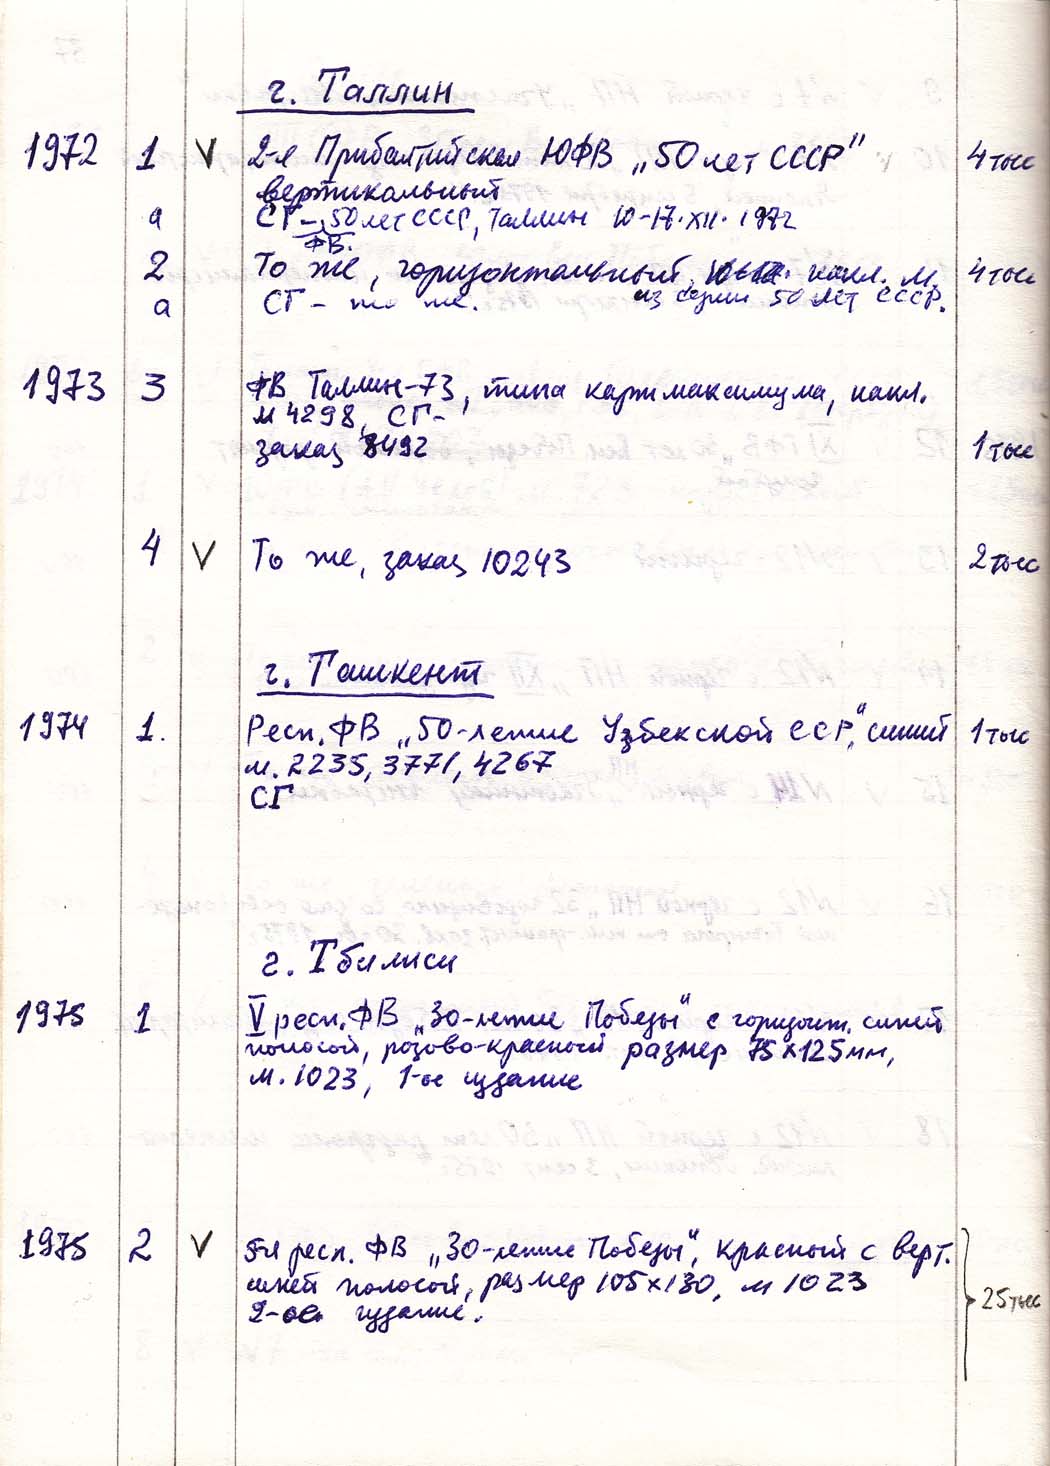 г. Таллин
1972 1 V 2-я Прибалтийская ЮФВ „50 лет СССР" 4 тыс
вертикальный
а СГ - 50 лет СССР, Таллин 10-17.XII.1972
ФВ.
2 То же, горизонтальный, накл. м. 4 тыс
а СГ - то же. из серии 50 лет СССР.
1973 3 ФВ Таллин-73, типа картмаксимума, накл.
м 4298, СГ-
заказ 8492 1 тыс
4 V То же, заказ 10243 2 тыс
г. Ташкент
1974 1. Респ. ФВ „50-летие Узбекской ССР", синий 1 тыс
м. 2235, 3771, 4267
СГ
г. Тбилиси
1975 1 V респ. ФВ „30-летие Победы" с горизонт. синей
полосой, розово-красный размер 75х125 мм,
м. 1023, 1-ое издание
1975 2 V 5-я респ. ФВ „30-летие Победы", красный с верт.
синей полосой, размер 105х130, м 1023
2-ое издание. 25 тыс